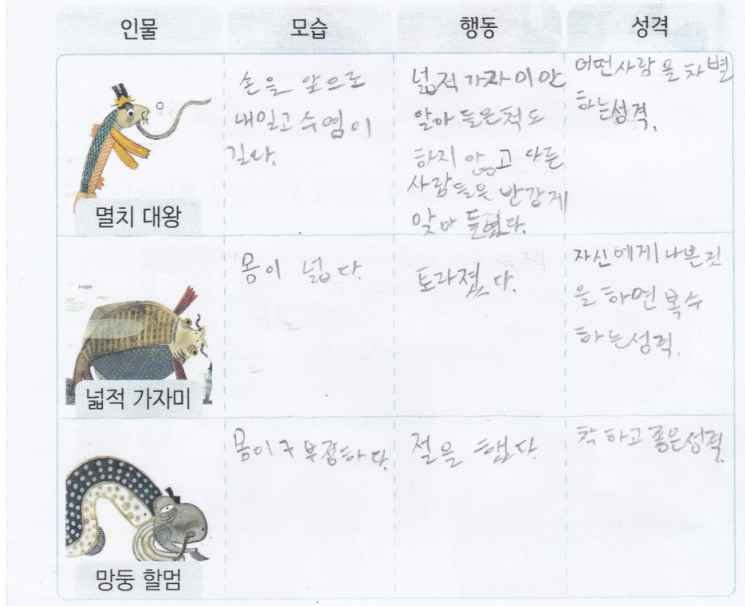 인물 모습 행동 성격
멸치 대왕
손을 앞으로
내밀고 수염이
길다.
넓적 가자미만
알아 들은척도
하지 않고 다른
사람들은 반갑게
맞아 들였다.
어떤사람을 차별
하는성격.
넓적 가자미
몸이 넓다.
토라졌다.
자신에게 나쁜짓
을 하면 복수
하는성격.
망둥 할멈
몸이 구부정하다.
절을 했다.
착하고 좋은성격.